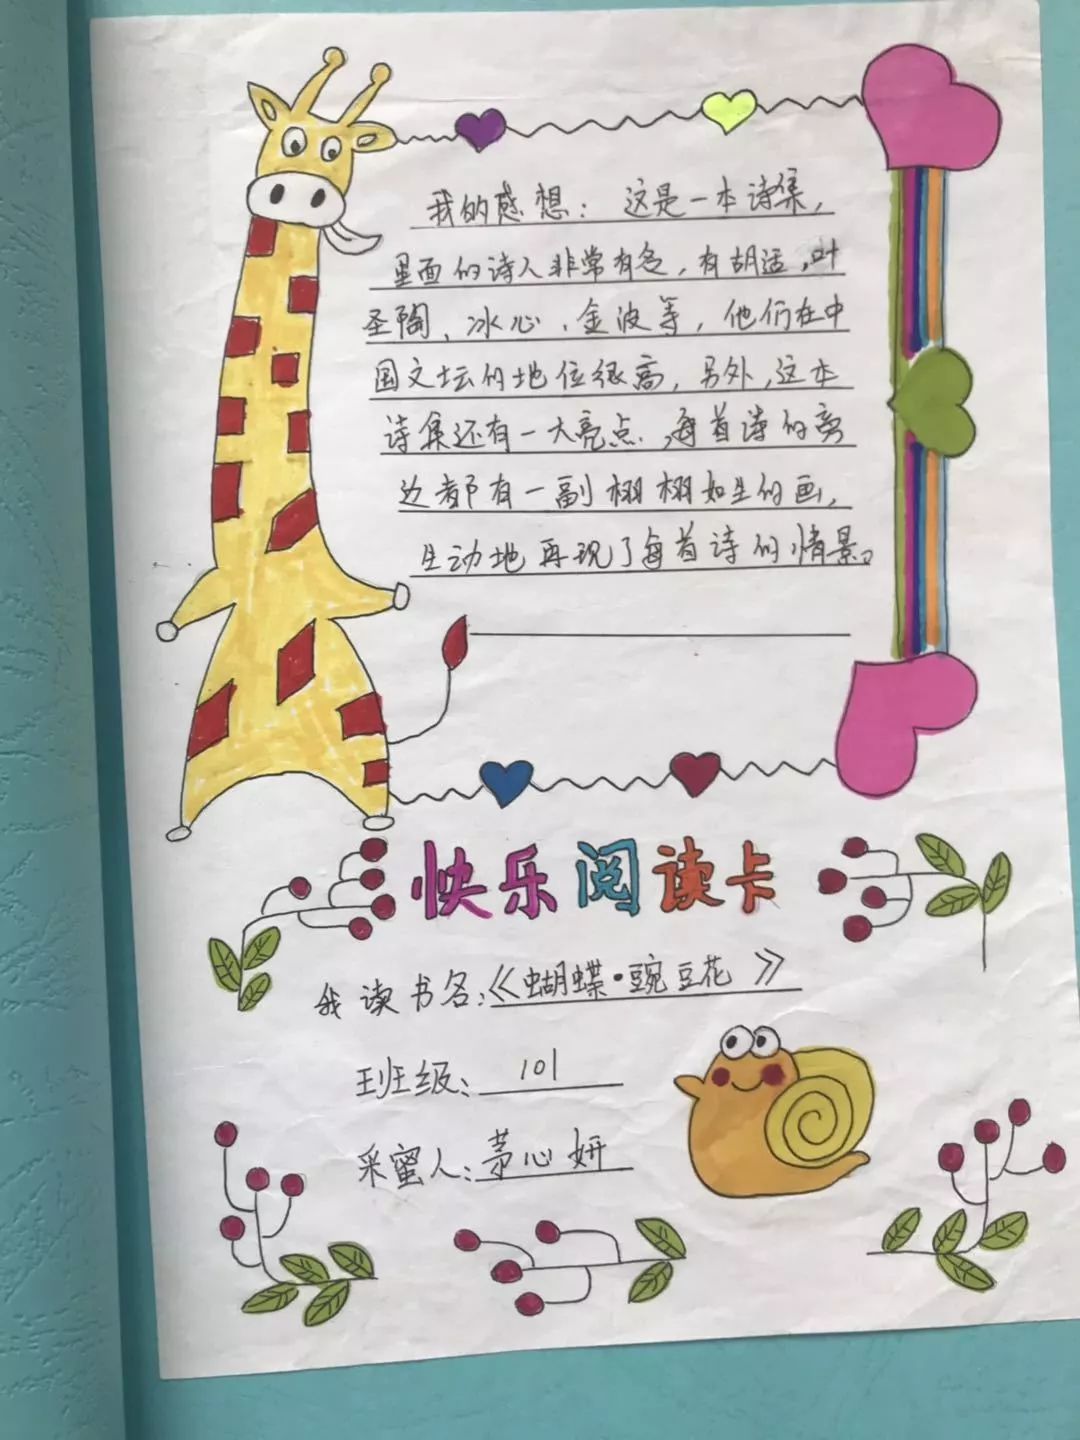 我的感想：这是一本诗集，
里面的诗人非常有名，有胡适，叶
圣陶、冰心、金波等，他们在中
国文坛的地位很高，另外，这本
诗集还有一大亮点，每首诗的旁
边都有一副栩栩如生的画，
生动地再现了每首诗的情景。
快乐阅读卡
我读书名：《蝴蝶·豌豆花》
班级：101
采蜜人：茅心妍